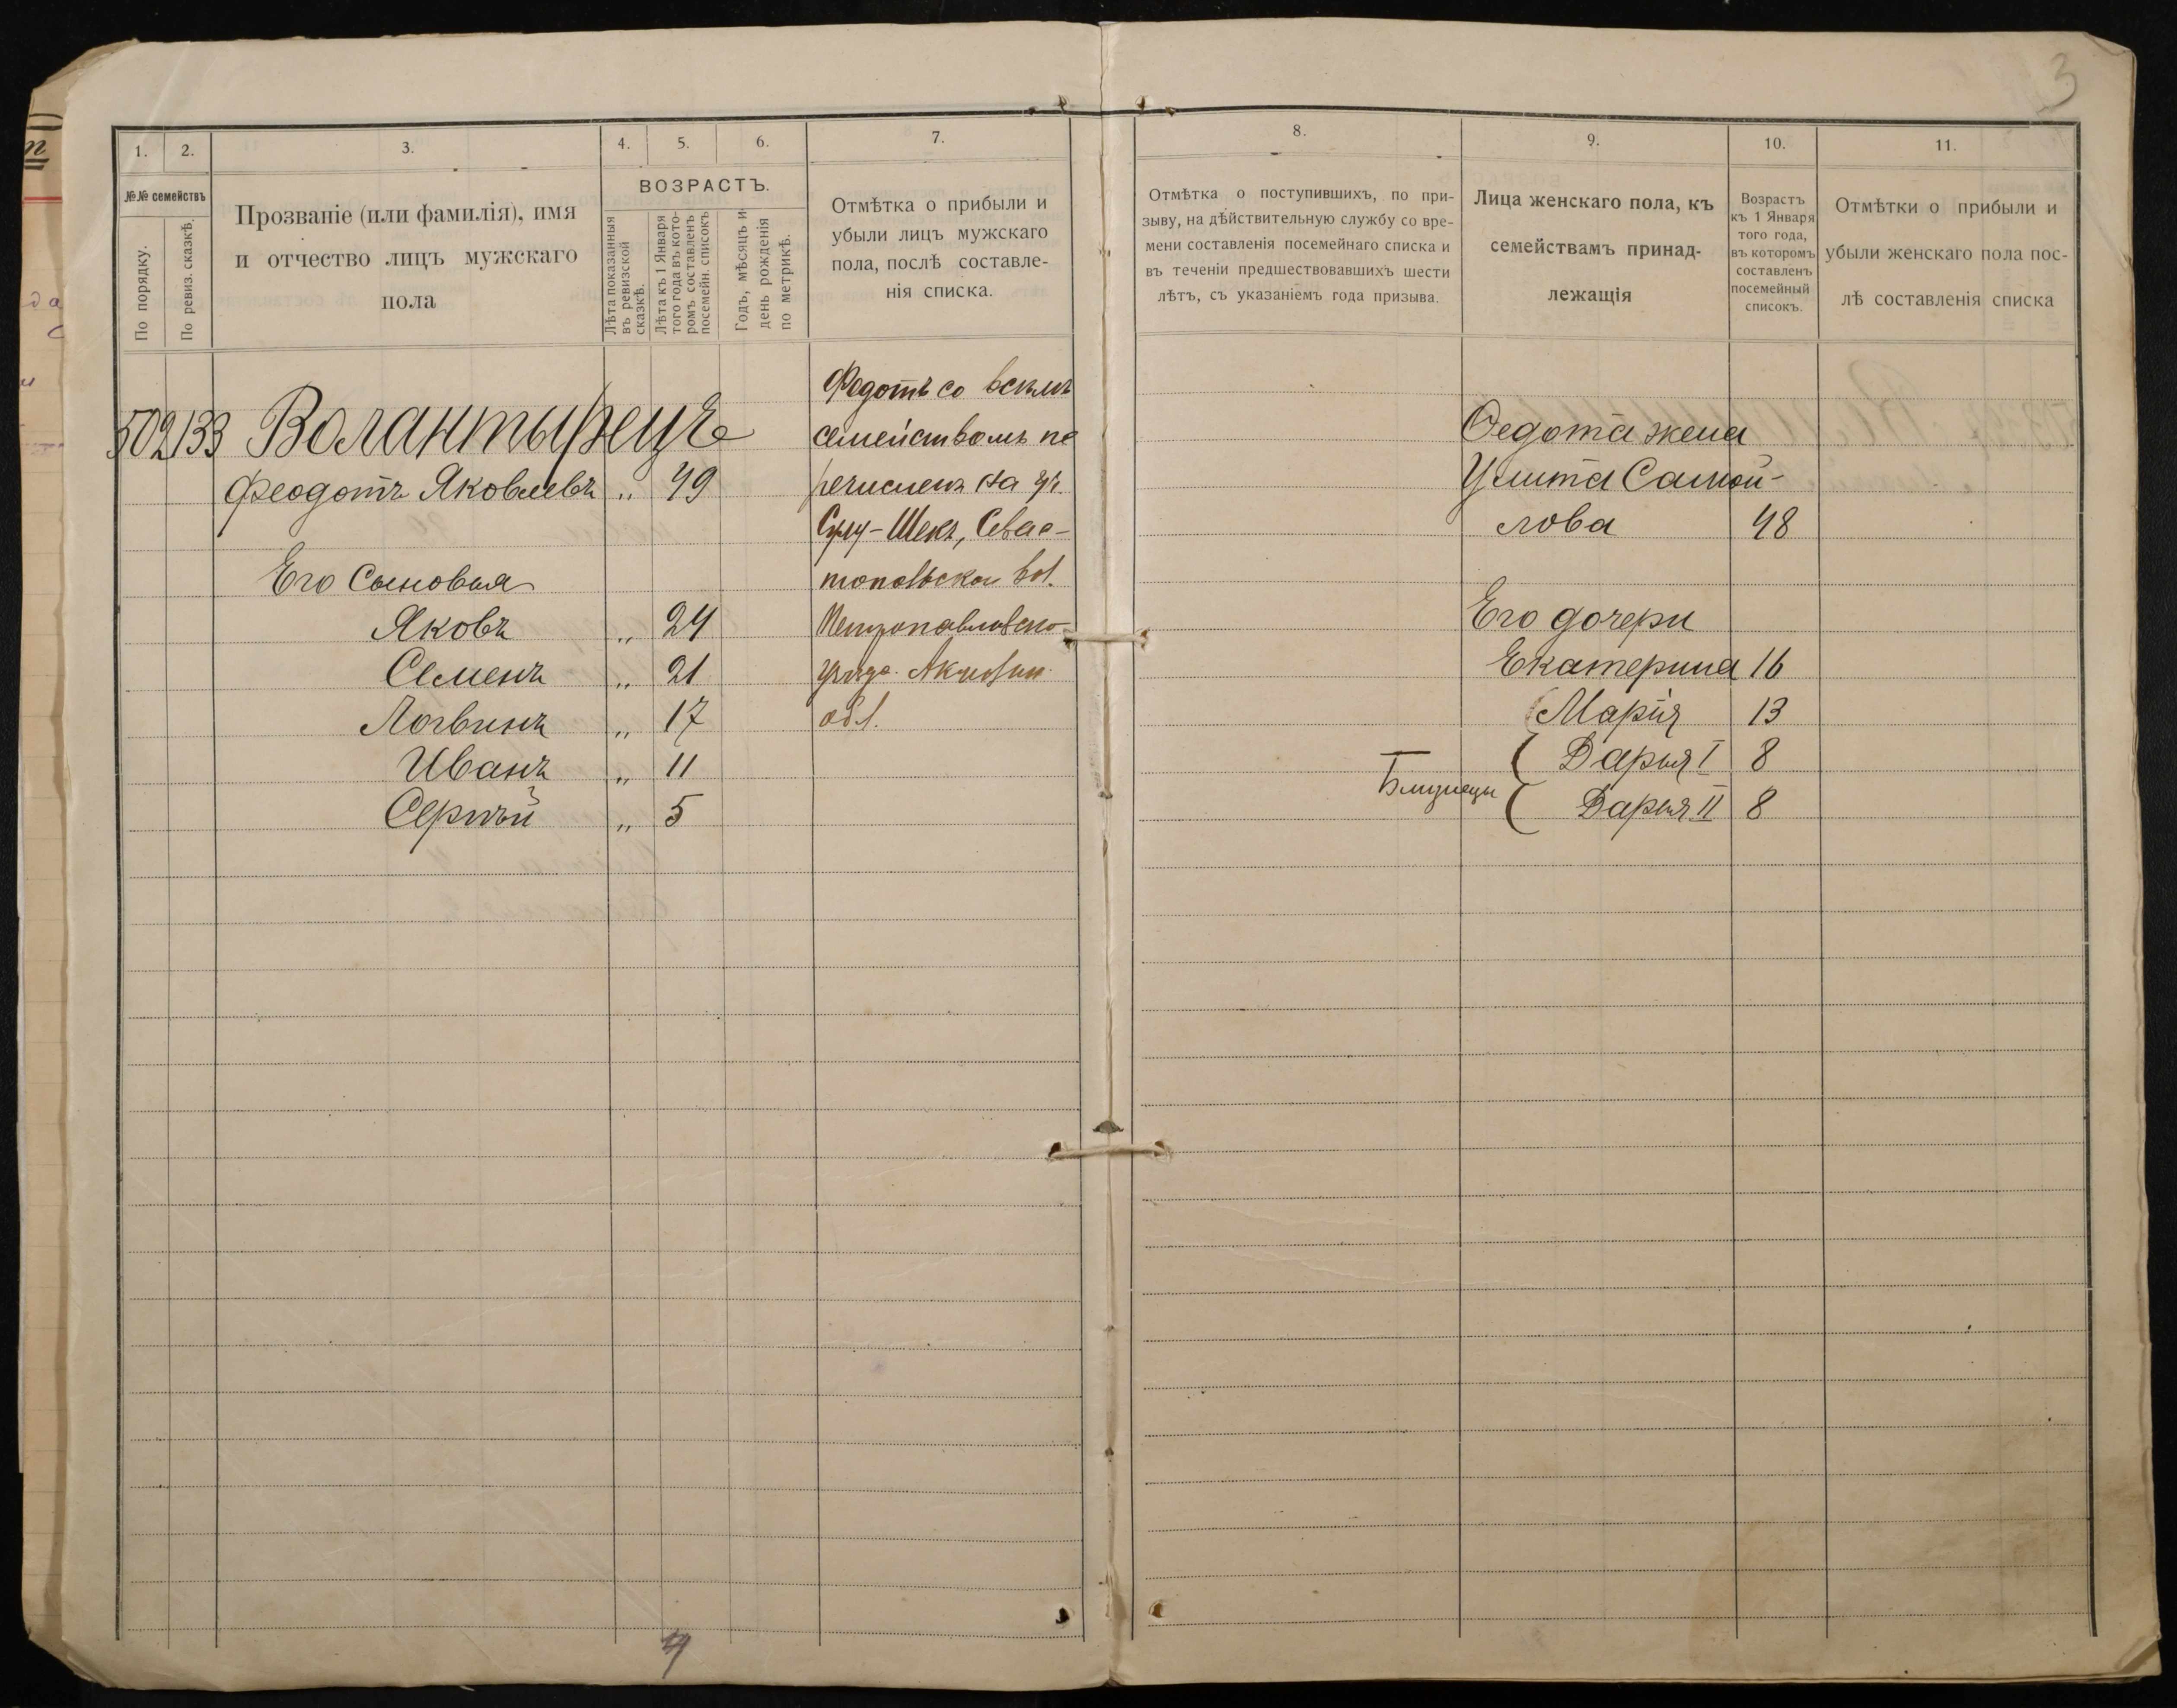 3
1. 2. 3. 4. 5. 6. 7.
№№ семействъ
По порядку.
По ревиз. сказкѣ.
Прозваніе (или фамилія), имя
и отчество лицъ мужскаго
пола
ВОЗРАСТЪ.
Лѣта показанныя
въ ревизской
сказкѣ.
Лѣта къ 1 Января
того года въ кото-
ромъ составленъ
посемейн. списокъ
Годъ, мѣсяцъ и
день рожденія
по метрикѣ.
Отмѣтка о прибыли и
убыли лицъ мужскаго
пола, послѣ составле-
нія списка.
502 133 Волантырецъ
Феодотъ Яковлевъ „ 49
Его Сыновья
Яковъ „ 24
Семенъ „ 21
Логвинъ „ 17
Иванъ „ 11
Сергѣй „ 5
Федотъ со всѣмъ
семействомъ пе
речисленъ на уч.
-Шекъ, Севас-
топольской вол.
Петропавловско
уѣзда. Акмолин
обл.
8. 9. 10. 11.
Отмѣтка о поступившихъ, по при-
зыву, на дѣйствительную службу со вре-
мени составленія посемейнаго списка и
въ теченіи предшествовавшихъ шести
лѣтъ, съ указаніемъ года призыва.
Лица женскаго пола, къ
семействамъ принад-
лежащія
Возрастъ
къ 1 Января
того года,
въ которомъ
составленъ
посемейный
списокъ.
Отмѣтки о прибыли и
убыли женскаго пола пос-
лѣ составленія списка
Ѳедота жена
Улита Самой-
лова 48
Его дочери
Екатерина 16
Марія 13
Дарья I 8
Близнецы
Дарья II 8